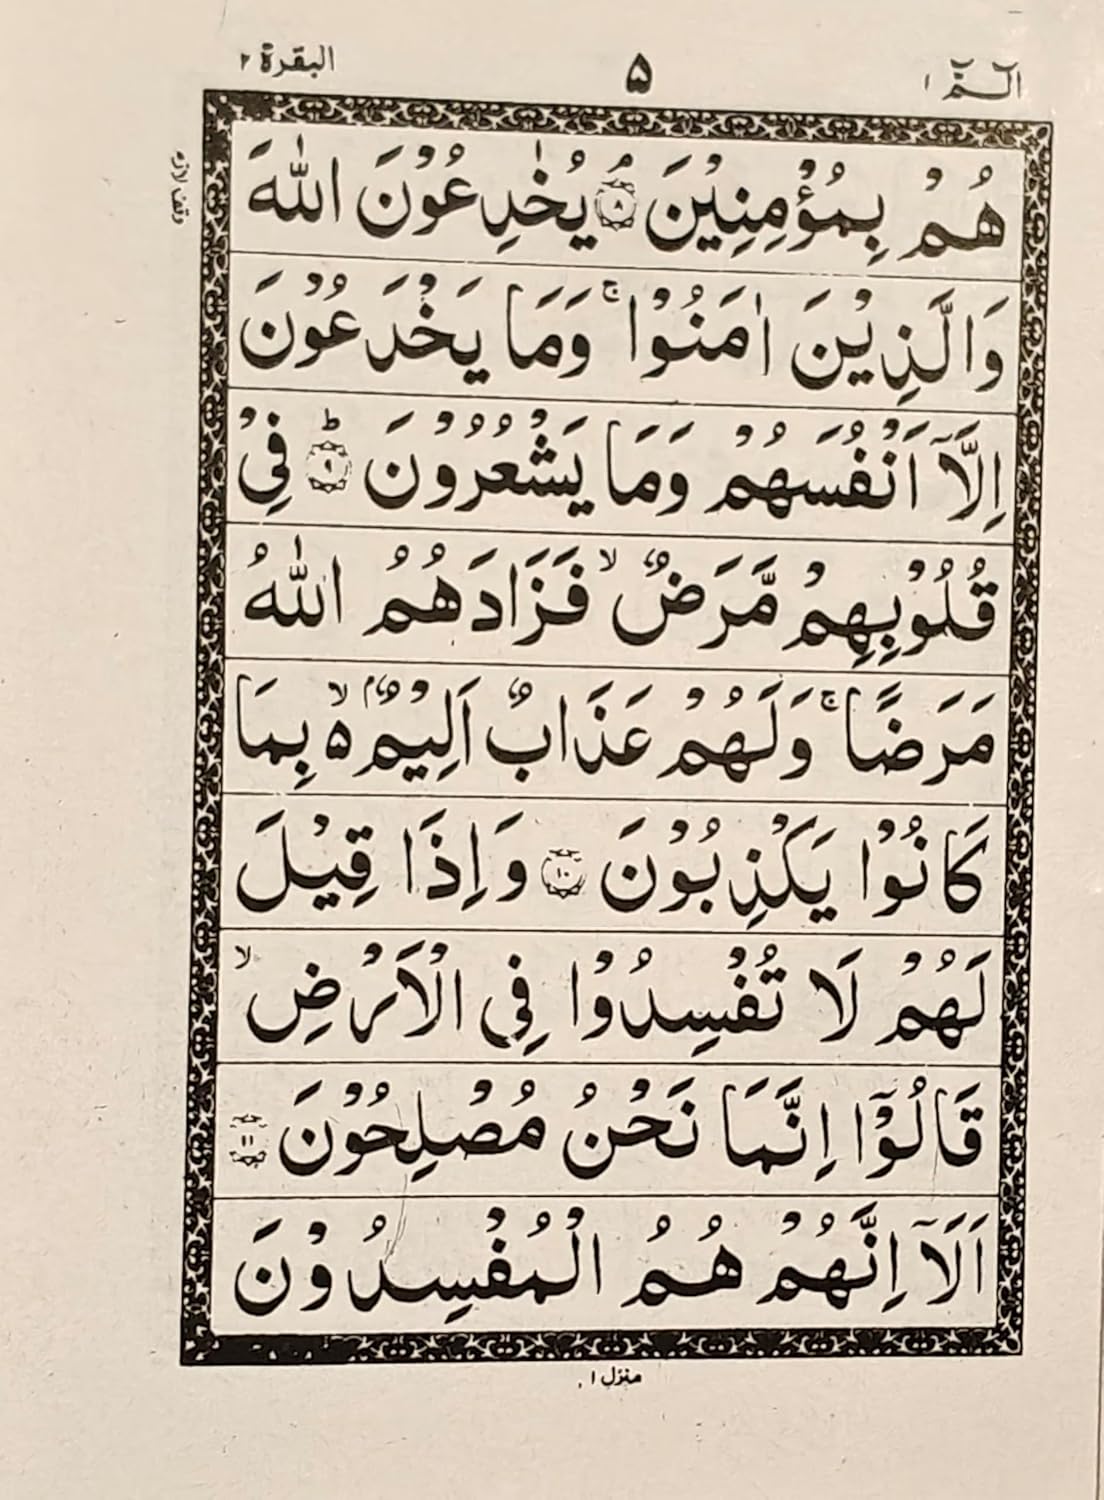 الٓـمّٓ ١ ۵ البقرة ٢
هُمْ بِمُؤْمِنِيْنَ ۘ﴿٨﴾ يُخٰدِعُوْنَ اللّٰهَ
وقف لازم
وَالَّذِيْنَ اٰمَنُوْا ۚ وَمَا يَخْدَعُوْنَ
اِلَّاۤ اَنْفُسَهُمْ وَمَا يَشْعُرُوْنَ ؕ﴿٩﴾ فِيْ
قُلُوْبِهِمْ مَّرَضٌ ۙ فَزَادَهُمُ اللّٰهُ
مَرَضًا ۚ وَلَهُمْ عَذَابٌ اَلِيْمٌۢ ۵ۙ بِمَا
كَانُوْا يَكْذِبُوْنَ ﴿١٠﴾ وَاِذَا قِيْلَ
لَهُمْ لَا تُفْسِدُوْا فِي الْاَرْضِ ۙ
قَالُوْۤا اِنَّمَا نَحْنُ مُصْلِحُوْنَ ﴿١١﴾
اَلَاۤ اِنَّهُمْ هُمُ الْمُفْسِدُوْنَ
منزل ١